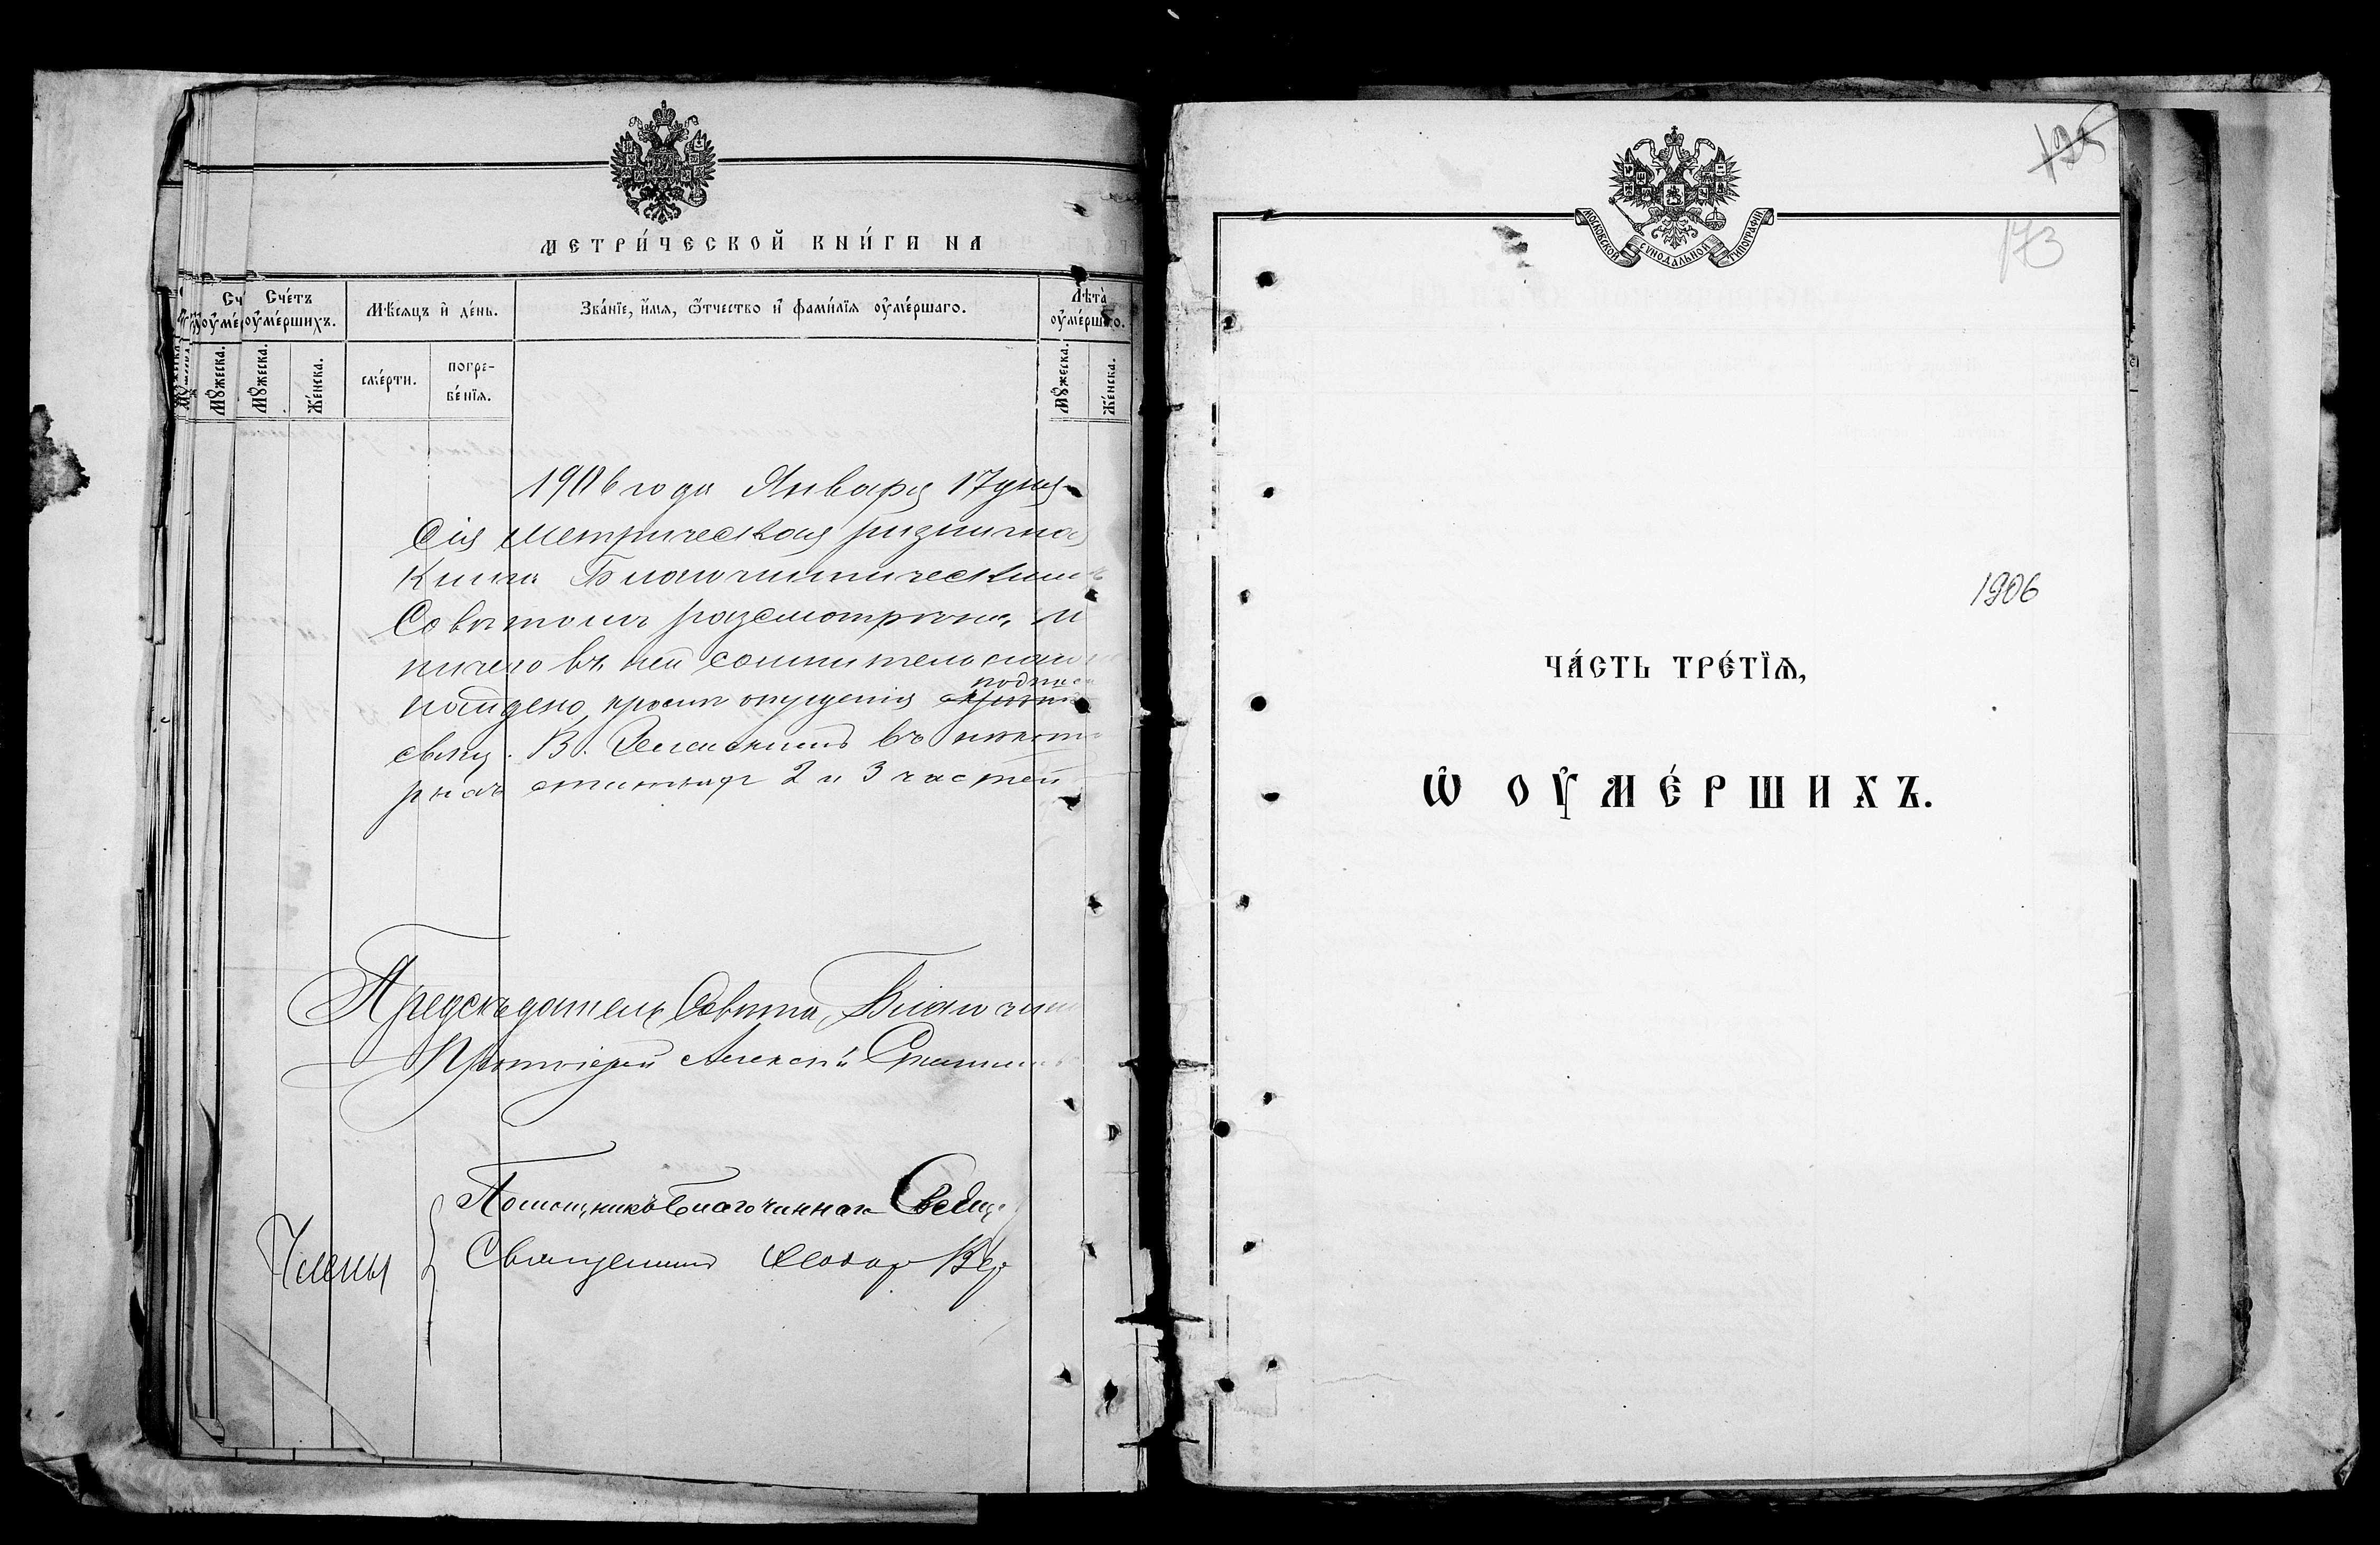 МЕТРИ́ЧЕСКОЙ КНИ́ГИ НА
Сче́тъ оу҆ме́ршихъ.
Мѣ́сяцъ и҆ де́нь.
Зва́нїе, и҆́мя, ѻ҆́тчество и҆ фами́лїя оу҆ме́ршаго.
Лѣта̀ оу҆ме́ршаго.
Мꙋ́жеска.
Мꙋ́жеска.
Же́нска.
сме́рти.
погре-
бе́нїя.
Мꙋ́жеска.
Же́нска.
1906 года Января 17 дня
Сія метрическая ризничная
книга Благочинническимъ
Совѣтомъ разсмотрѣна, и
ничего въ ней сомнительнаго
подписи
найдено, кромѣ опущенія
свящ. В. въ нѣкото
рыхъ статьяхъ 2 и 3 частей
Предсѣдатель Совѣта, Благочин
Протоіерей Алексѣй
Помощникъ Благочиннаго Свящ
Члены
Священникъ Ѳеодоръ
195
МОСКОВСКОЙ СѴНОДАЛЬНОЙ ТИПОГРАФІИ
173
1906
ЧА́СТЬ ТРЕ́ТЇѦ,
Ѡ҆ ОУ҆МЕ́РШИХЪ.